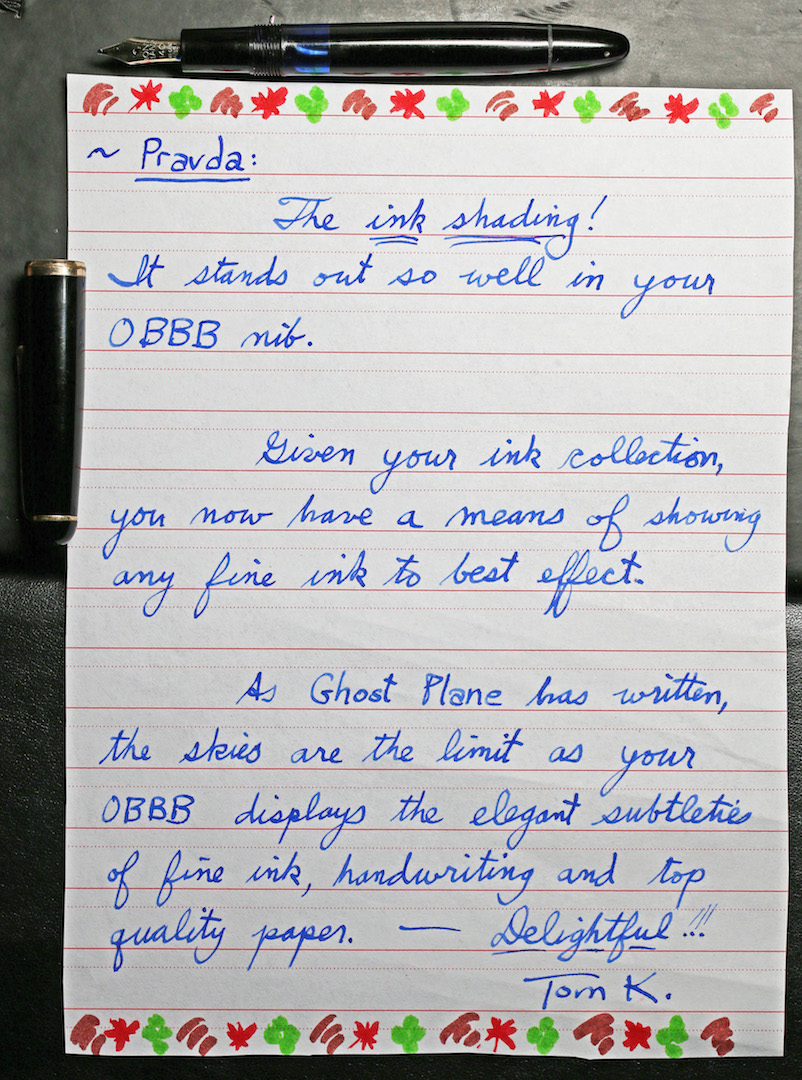 ~ Pravda:
The ink shading!
It stands out so well in your
OBBB nib.
Given your ink collection,
you now have a means of showing
any fine ink to best effect.
As Ghost Plane has written,
the skies are the limit as your
OBBB displays the elegant subtleties
of fine ink, handwriting and top
quality paper. — Delightful!!!
Tom K.